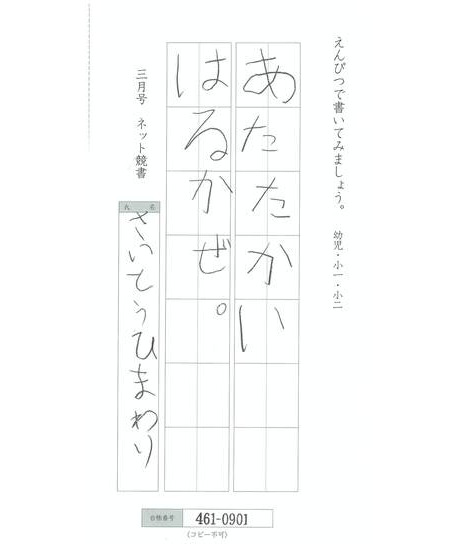 えんぴつで書いてみましょう。　幼児・小一・小二
あたたかい
はるかぜ。
三月号　ネット競書
氏名
さいとうひまわり
台帳番号 461-0901
(コピー不可)